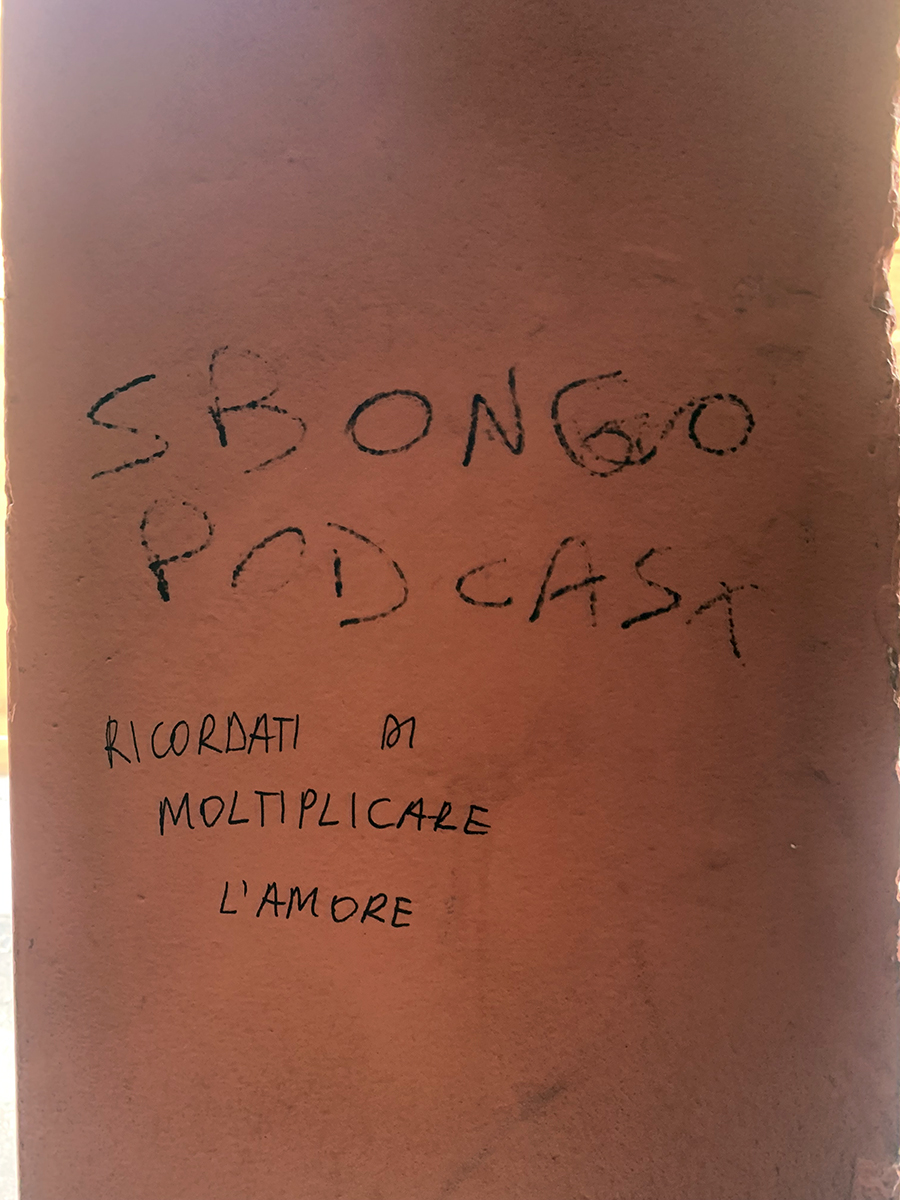 SBONGO
PODCAST
RICORDATI DI
MOLTIPLICARE
L'AMORE